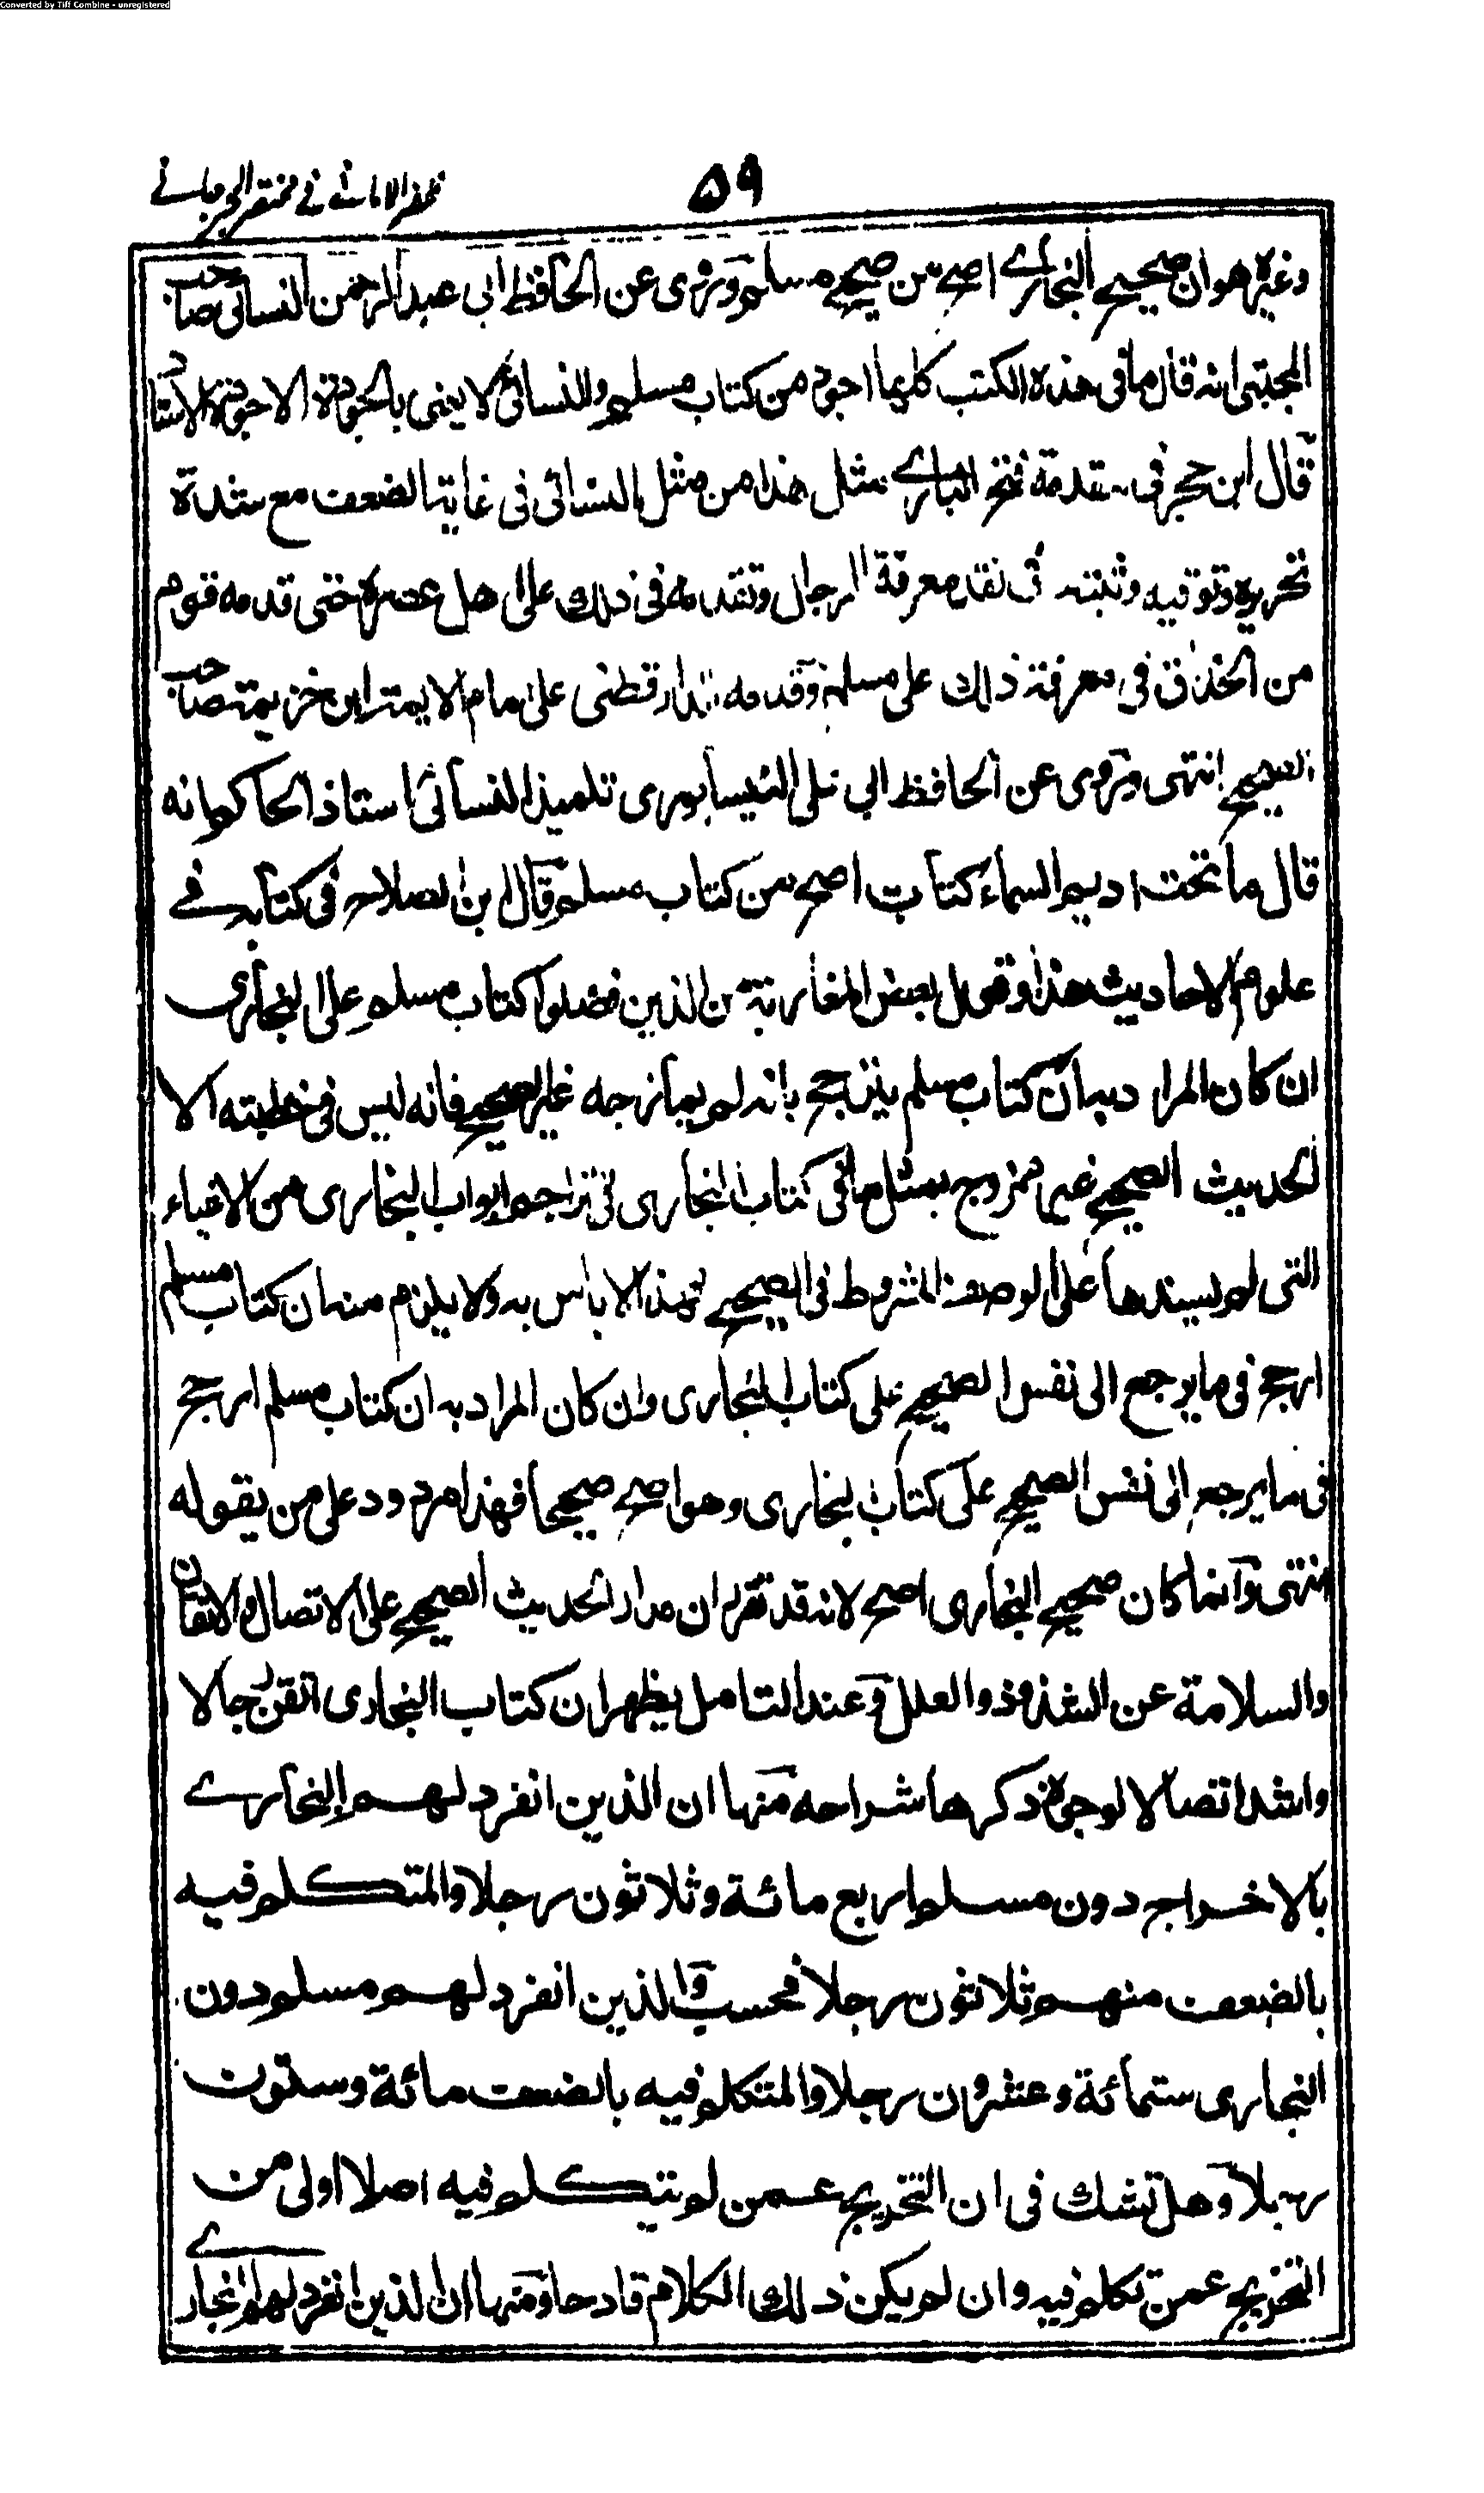 Converted by Tiff Combine - unregistered
٥٩
ظفر الامانى في مختصر الجرجانے
وغيره هو ان صحيح البخارے اصح من صحيح مسلم وروى عن الحافظ ابى عبد الرحمن النسائى صاحب
المجتبى انه قال ما فى هذه الكتب كلها اجود من كتاب مسلم والنسائى لا يعنى بالجودة الا جودة الاسناد
قال ابن حجر فى مقدمة فتح البارے مثل هذا من مثل النسائى فى غاية الضعف مع شدة
تحريه وتوقيه وثبته فى نقد معرفة الرجال وتقدمه فى ذلك على اهل عصره حتى قدمه قوم
من الحذاق في معرفة ذلك على مسلم وقدمه الدارقطنى على امام الايمة ابن خزيمة صاحب
الصحيح انتهى وروى عن الحافظ ابي على النيسابورى تلميذ النسائى استاذ الحاكم انه
قال ما تحت اديم السماء كتاب اصح من كتاب مسلم وقال ابن الصلاح فى كتابه فے
علوم الاحاديث هذا وقول بعض المغاربة من الذين فضلوا كتاب مسلم على البخارى
ان كان المراد به ان كتاب مسلم يترجح بانه لم يمازجه غير الصحيح فانه ليس فى خطبته الا
الحديث الصحيح غير ممزوج بمثل ما فى كتاب البخارى فى تراجم ابواب البخارى من الاشياء
التى لم يسندها على الوصف المشروط فى الصحيح فهذا لا باس به ولا يلزم منه ان كتاب مسلم
ارجح فى ما يرجع الى نفس الصحيح على كتاب البخارى وان كان المراد به ان كتاب مسلم ارجح
فى ما يرجع الى نفس الصحيح على كتاب البخارى وهو اصح صحيحا فهذا مردود على من يقوله
انتهى وانما كان صحيح البخارى اصح لانه قد تقرر ان مدار الحديث الصحيح على الاتصال والاتقان
والسلامة عن الشذوذ والعلل وعند التامل يظهر ان كتاب البخارى اتقن رجالا
واشد اتصالا لوجوه ذكرها شراحه منها ان الذين انفرد لهم البخارے
بالاخراج دون مسلم اربع مائة وثلاثون رجلا والمتكلم فيه
بالضعف منهم ثلاثون رجلا فحسب والذين انفرد لهم مسلم دون
البخارى ستمائة وعشرون رجلا والمتكلم فيه بالضعف مائة وستون
رجلا وهل تشك فى ان التخريج عمن لم يتكلم فيه اصلا اولى من
التخريج عمن تكلم فيه وان لم يكن ذلك الكلام قادحا ومنها ان الذين انفرد لهم البخارے